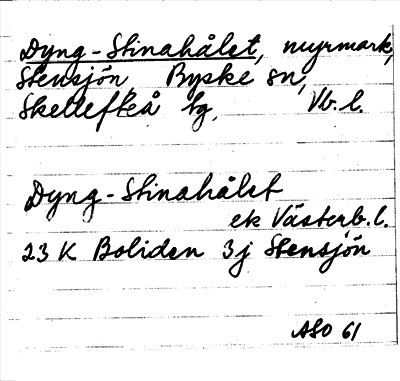 Dyng-Stinahålet, myrmark,
Stensjön, Byske sn,
Skellefteå tg, Vb. l.
Dyng-Stinahålet
ek Västerb. l.
23 K Boliden 3j Stensjön
ASO 61